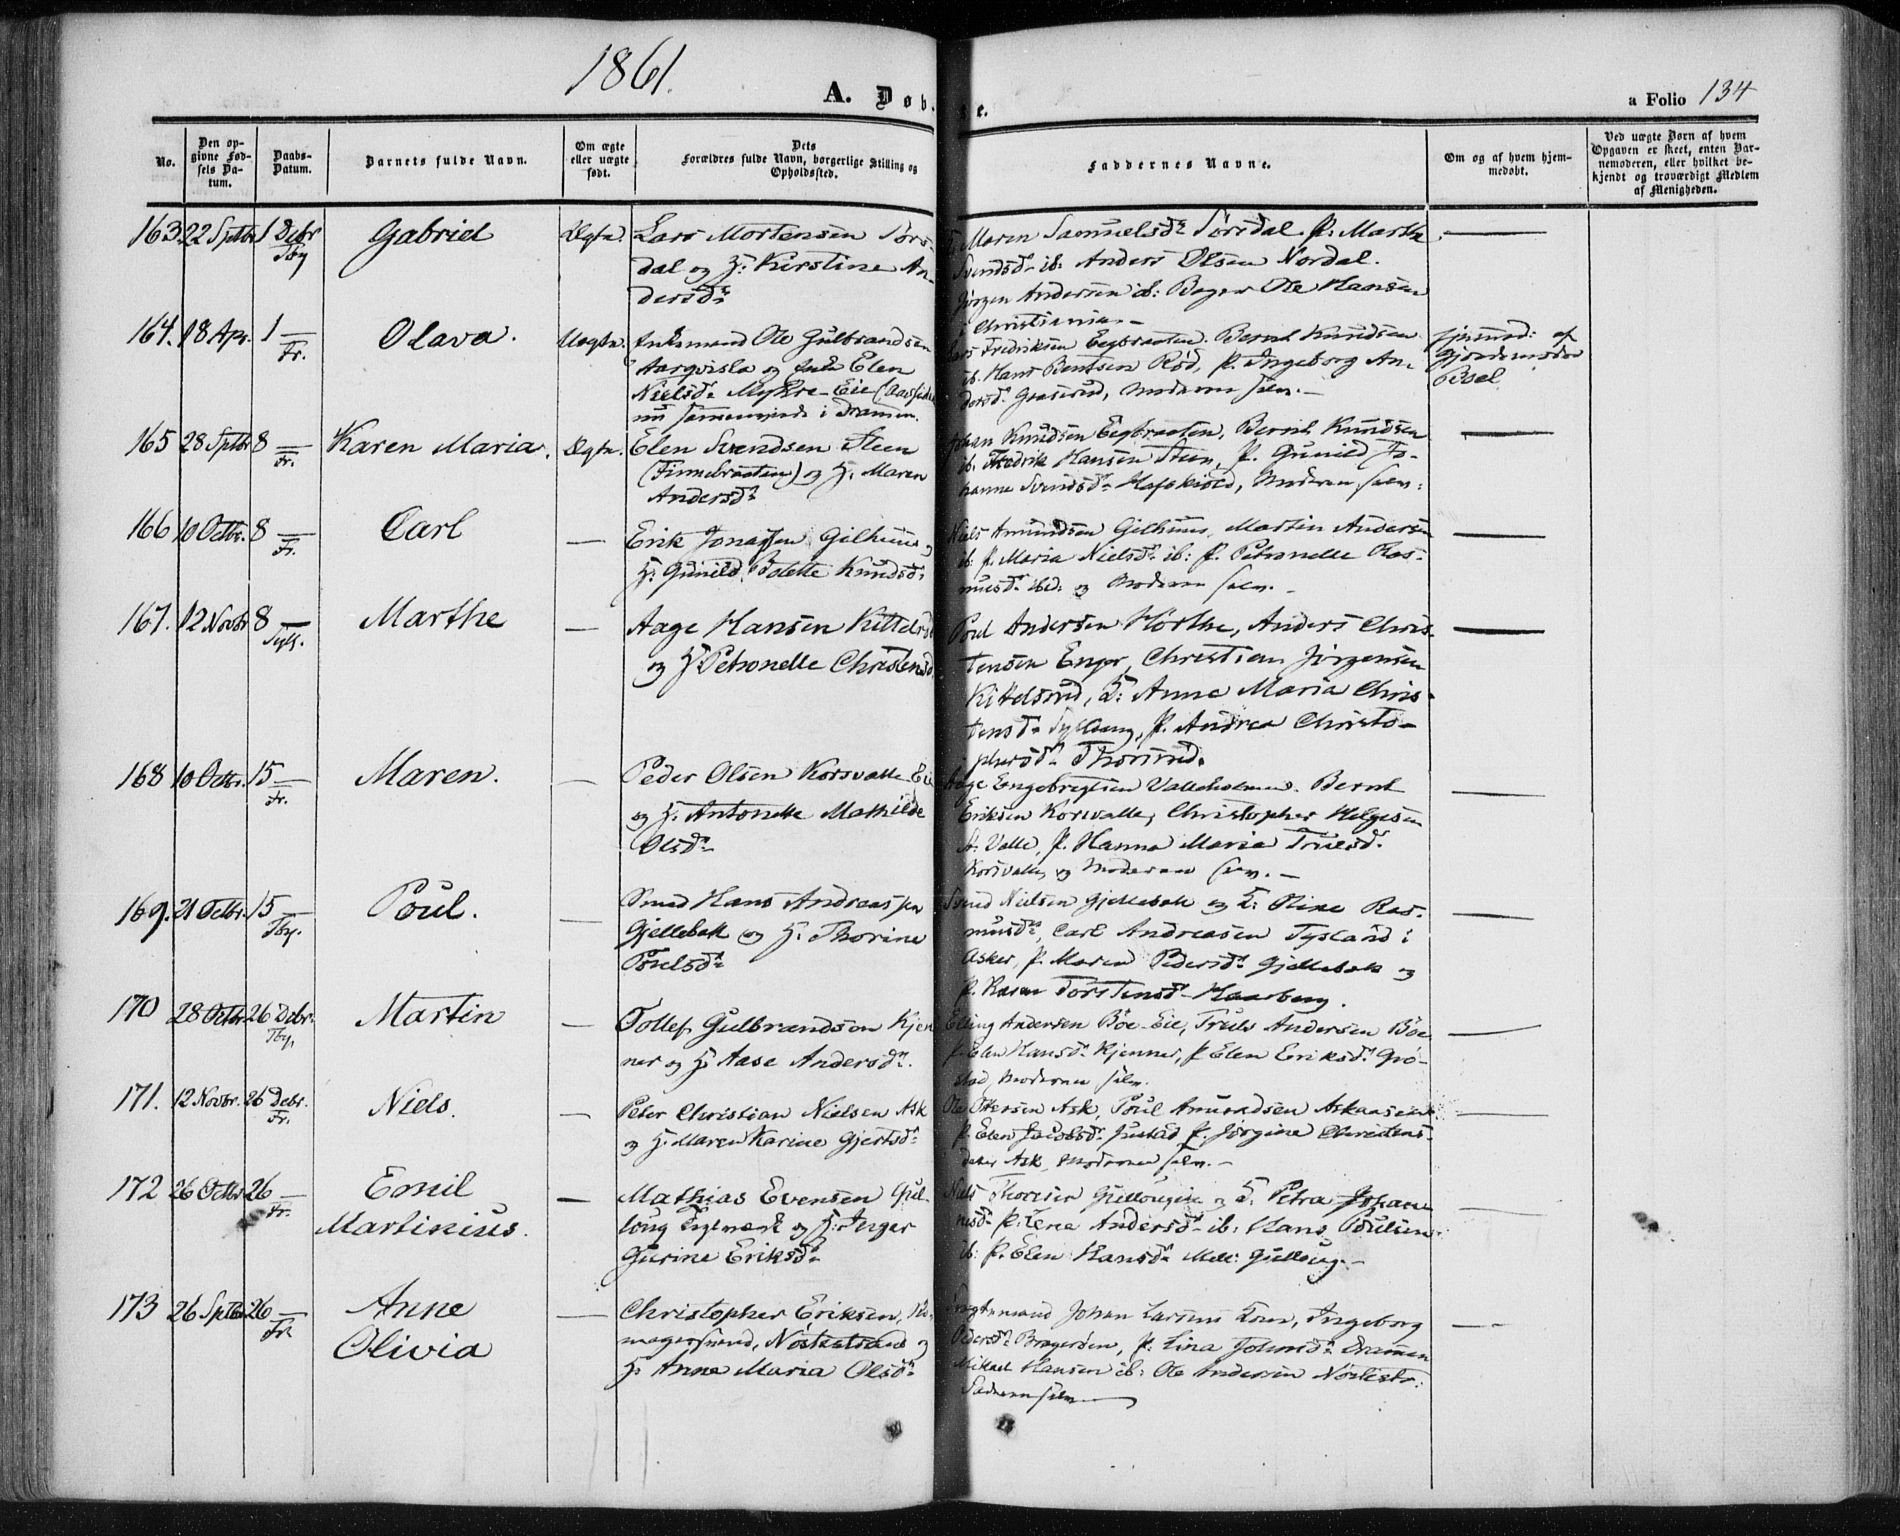 1861.
A. Døb-
te.
a Folio 134
No.
Den op-
givne Fød-
sels Da-
tum.
Daabs-
Datum.
Barnets fulde Navn.
Om ægte
eller uægte
født.
Dets
Forældres fulde Navn, borgerlige Stilling og
Opholdssted.
Faddernes Navne.
Om og af hvem hjem-
medøbt.
Ved uægte Børn af hvem
Opgaven er skeet, enten Bar-
nemoderen, eller hvilket be-
kjendt og troværdigt Medlem
af Menigheden.
163. 22 Sptbr 1 Debr Gabriel Ægte. Lars Mortensen Sørs-
dal og H: Kirstine An-
dersdr
Maren Samuelsdr Sørsdal. P. Marthe
Svendsdr ib: Anders Olsen Nordal.
Jørgen Andersen ib: Bager Ole Hansen
i Christiania.
164. 18 Apr. 1 Fr. Olava. Uægte. Enkemand Ole Gulbrandsen
og Enke Elen
Nielsdr Myhre-Eie
i Drammen.
Lars Fredriksen Eegbraaten. Bernt Knudsen
ib. Hans Bentsen Rød, P. Ingeborg An-
dersdr Moderen selv.
hjemmed: af
Gjordemoder
Boel
165 28 Sptbr 8 Fr. Karen Maria. Ægte. Elen Svendsen Steen
(Finnebraaten) og H. Maren
Andersdr
Johan Knudsen Eegbraaten, Bernt Knudsen
ib. Fredrik Hansen Steen, P. Gunild Jo-
hanne Svendsdr Moderen selv.
166 10 Octbr. 8 Fr. Carl — Erik Jonassen Gilhuus og
H: Gunild Bolette Knudsdr
Niels Amundsen Gilhuus, Martin Andersen
ib: P. Maria Nielsdr ib: P. Petronelle Ras-
musdr ibd. og Moderen selv.
167. 12 Novbr 8 Syll. Marthe — Aage Hansen Kittelsrud
og H. Petronelle Christensd
Poul Andersen Hørthe, Anders Chris-
tensen Enger, Christian Jørgensen
Kittelsrud, K: Anne Maria Chris-
tensdr Sylling, P. Andrea Christo-
phersdr Thorsrud.
168 10 Octbr. 15 Fr. Maren. — Peder Olsen Korsvalle Eie
og H. Antonette Mathilde
Olsdr
Aage Engebregtsen Valleholmen. Bernt
Eriksen Korsvalle, Christopher Helgesen
St. Valle, P. Hanna Maria Truelsdr
Korsvalle, og Moderen selv.
169. 21 Octbr. 15 Tby. Poul. — Smed Hans Andreassen
Gjellebæk og H. Thorine
Poulsdr
Svend Nielsen Gjellebæk og K: Oline Ras-
musdr, Carl Andreasen Tysland i
Asker, P. Maren Pedersdr Gjellebæk og
P. Karen Torstensdr Haaberg.
170 28 Octbr 26 Debr. Tby. Martin — Tollef Gulbrandsen Kjen
ner og H. Aase Andersdr.
Elling Andersen Böe Eie, Truls Andersen Böe
P. Elen Hansdr Kjenner, P Elen Eriksdr Grø-
stad, Moderen selv.
171. 12 Novbr. 26 Debr. Fr. Niels. — Peter Christian Nielsen Ask
og H. Maren Karine Gjertsdr
Ole Ottersen Ask, Poul Amundsen Askaaseie.
P. Elen Jacobsdr Justad P. Jørgine Christens-
datter Ask, Moderen selv. —
172 26 Octbr 26 Fr. Emil
Martinius. — Mathias Evensen Gul-
loug og H: Inger
Gurine Eriksdr
Niels Thoresen Gullougeie og K: Petra Johanne
P. Lene Andersdr ib: Hans Poulsen
ib: P. Elen Hansdr Mell: Gulloug. —
173 26 Sptbr 26 Fr. Anne
Olivia — Christopher Eriksen, Sko-
magersvend, Nøstestrand og
H. Anne Maria Olsdr
Johan Larsen Ingeborg
Pedersdr Bragerøen, P. Lina Johnsdr Drammen
Mikael Hansen ib: Ole Andersen Nøstestr:
Faderen selv.